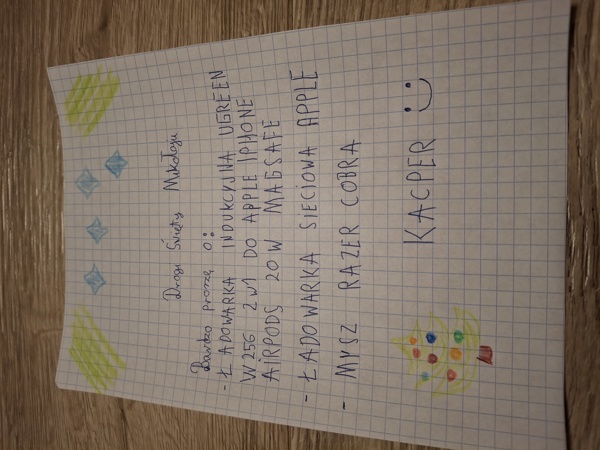 Drogi Święty Mikołaju
Bardzo proszę o:
- ŁADOWARKA INDUKCYJNA UGREEN
W256 2W1 DO APPLE IPHONE
AIRPODS 20W MAGSAFE
- ŁADOWARKA SIECIOWA APPLE
- MYSZ RAZER COBRA
KACPER :)